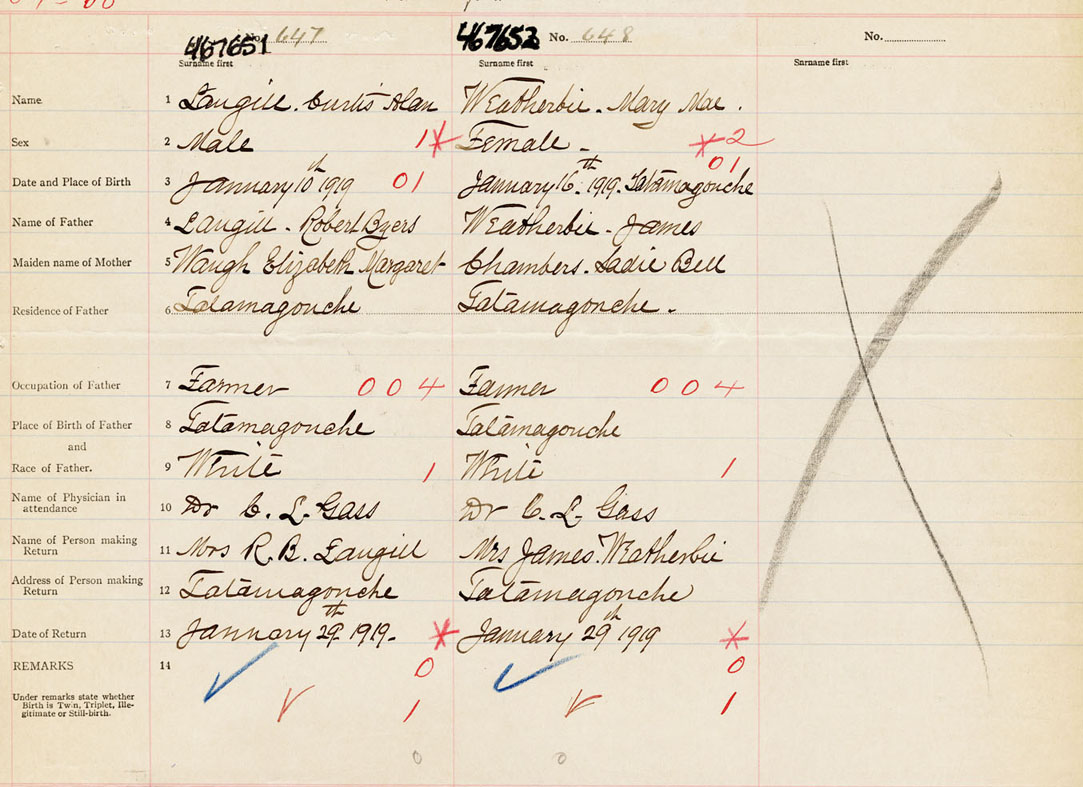 467651 No. 647 467652 No. 648 No.
Surname first Surname first Surname first
Name 1 Langill. Curtis Alan Weatherbie. Mary Mae.
Sex 2 Male 1* Female - *2
Date and Place of Birth 3 January 10th 1919 01 January 16th. 1919. Tatamagouche 01
Name of Father 4 Langill. Robert Byers Weatherbie. James
Maiden name of Mother 5 Waugh Elizabeth Margaret Chambers. Sadie Bell
Residence of Father 6 Tatamagouche Tatamagouche.
Occupation of Father 7 Farmer 004 Farmer 004
Place of Birth of Father 8 Tatamagouche Tatamagouche
and
Race of Father. 9 White 1 White 1
Name of Physician in
attendance 10 Dr C. L. Gass Dr C. L. Gass
Name of Person making
Return 11 Mrs R. B. Langill Mrs James. Weatherbie
Address of Person making
Return 12 Tatamagouche Tatamagouche
Date of Return 13 January 29th 1919. * January 29th 1919 *
REMARKS 14 0 0
Under remarks state whether
Birth is Twin, Triplet, Ille-
gitimate or Still-birth. 1 1
0 0